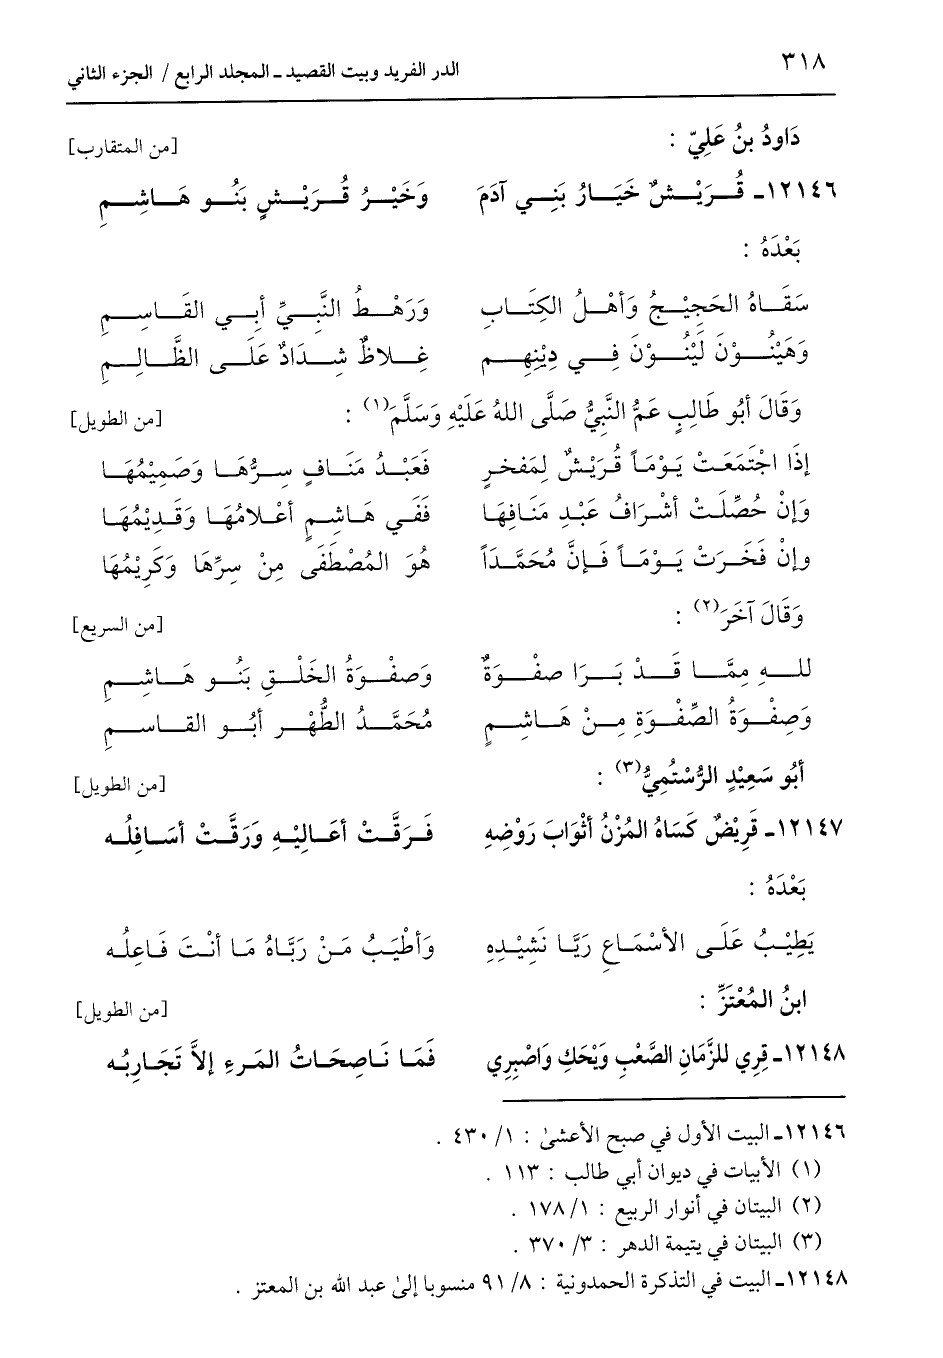 ٣١٨ الدر الفريد وبيت القصيد ـ المجلد الرابع / الجزء الثاني
دَاودُ بنُ عَلِيّ : [من المتقارب]
١٢١٤٦ـ قُرَيْشٌ خَيَارُ بَنِي آدَمَ وَخَيْرُ قُرَيْشٍ بَنُو هَاشِمِ
بَعْدَهُ :
سَقَاةُ الحَجِيْجُ وَأهْلُ الكِتَابِ وَرَهْطُ النَّبِيِّ أبي القَاسِمِ
وَهَيْنُوْنَ لَيْنُوْنَ فِي دِيْنِهِم غِلاظٌ شِدَادٌ عَلَى الظَّالِمِ
وَقَالَ أبُو طَالِبٍ عَمُّ النَّبِيُّ صَلَّى اللهُ عَلَيْهِ وَسَلَّمَ(١) : [من الطويل]
إذَا اجْتَمَعَتْ يَوْمَاً قُرَيْشٌ لِمَفخرٍ فَعَبْدُ مَنَافٍ سِرُّهَا وَصَمِيْمُهَا
وَإنْ حُصِّلَتْ أشْرَافُ عَبْدِ مَنَافِهَا فَفَي هَاشِمٍ أعْلامُهَا وَقَدِيْمُهَا
وإنْ فَخَرَتْ يَوْمَاً فَإنَّ مُحَمَّدَاً هُوَ المُصْطَفَى مِنْ سِرِّهَا وَكَرِيْمُهَا
وَقَالَ آخَرَ(٢) : [من السريع]
للهِ مِمَّا قَدْ بَرَا صفْوَةٌ وَصفْوَةُ الخَلْقِ بَنُو هَاشِمِ
وَصِفْوَةُ الصِّفْوَةِ مِنْ هَاشِمٍ مُحَمَّدُ الطُّهْرِ أبُو القَاسِمِ
أبُو سَعِيْدٍ الرُّسْتُمِيُّ(٣) : [من الطويل]
١٢١٤٧ـ قَرِيْضٌ كَسَاهُ المُزْنُ أثْوَابَ رَوْضِهِ فَرَقَّتْ أعَالِيْهِ وَرَقَّتْ أسَافِلُه
بَعْدَهُ :
يَطِيْبُ عَلَى الأسْمَاعِ رَيَّا نَشِيْدِهِ وَأطْيَبُ مَنْ رَيَّاهُ مَا أنْتَ فَاعِلُه
ابنُ المُعْتَزِّ : [من الطويل]
١٢١٤٨ـ قِرِي للزَّمَانِ الصَّعْبِ وَيْحَكِ وَاصْبِرِي فَمَا نَاصِحَاتُ المَرءِ إلاَّ تَجَارِبُه
١٢١٤٦ـ البيت الأول في صبح الأعشىٰ : ١/ ٤٣٠ .
(١) الأبيات في ديوان أبي طالب : ١١٣ .
(٢) البيتان في أنوار الربيع : ١/ ١٧٨ .
(٣) البيتان في يتيمة الدهر : ٣/ ٣٧٠ .
١٢١٤٨ـ البيت في التذكرة الحمدونية : ٨/ ٩١ منسوبا إلىٰ عبد الله بن المعتز .